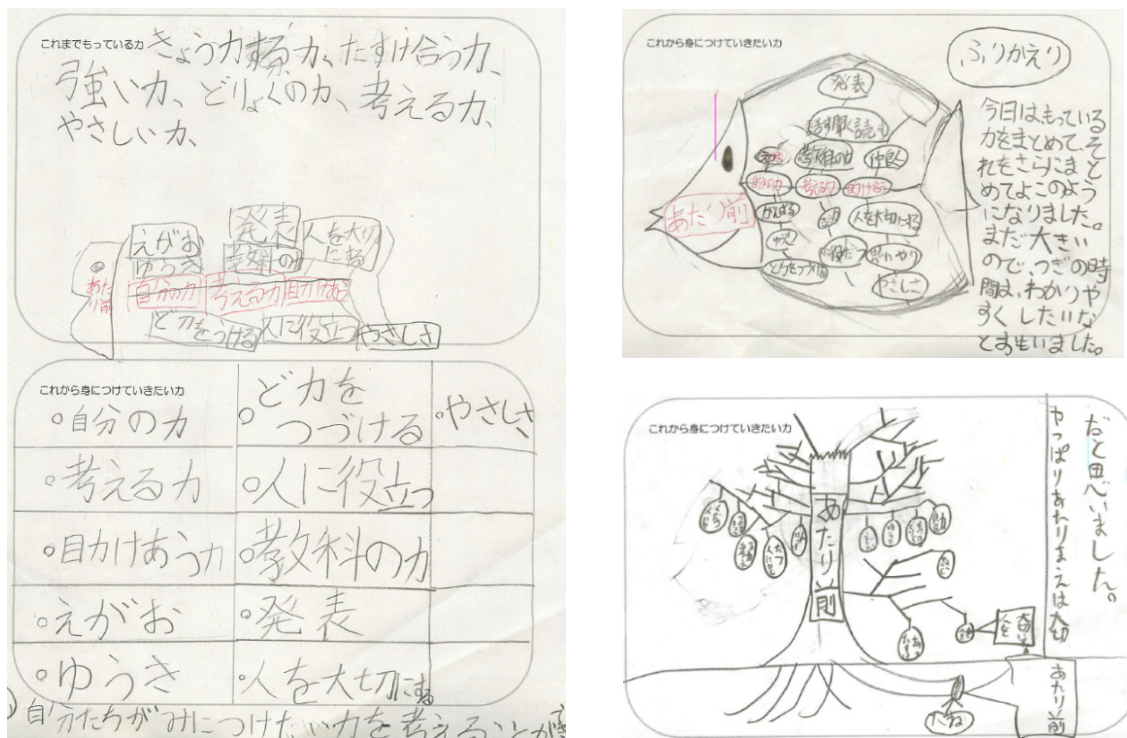 これまでもっている力
きょう力、力、たすけ合う力、
強い力、どりょくの力、考える力、
やさしい力、
発表
えがお
人を大切
にする
ゆうき
教科の力
あたり前
自分の力
考える力
助けあう
ど力をつける
人に役立つ
やさしさ
これから身につけていきたい力
○自分の力
○ど力を
つづける
○やさしさ
○考える力
○人に役立つ
○助けあう力
○教科の力
○えがお
○発表
○ゆうき
○人を大切にする
自分たちがみにつけたい力を考えることができ
これから身につけていきたい力
ふりかえり
発表
話す聞く読む
教科の力
仲良く
自分の力
考える力
助け合う
あたり前
がんばる
人を大切にする
ゆうき
役だつ
思いやり
ど力をつづける
やさしさ
今日は、もっている
力をまとめて、そ
れをさらにまと
めてよこのよう
になりました。
まだ大きい
ので、つぎの時
間は、わかりや
すくしたいな
と思いました。
これから身につけていきたい力
やっぱりあたりまえは大切
なと思いました。
あたり前
人を
大切に
あたり前
たね